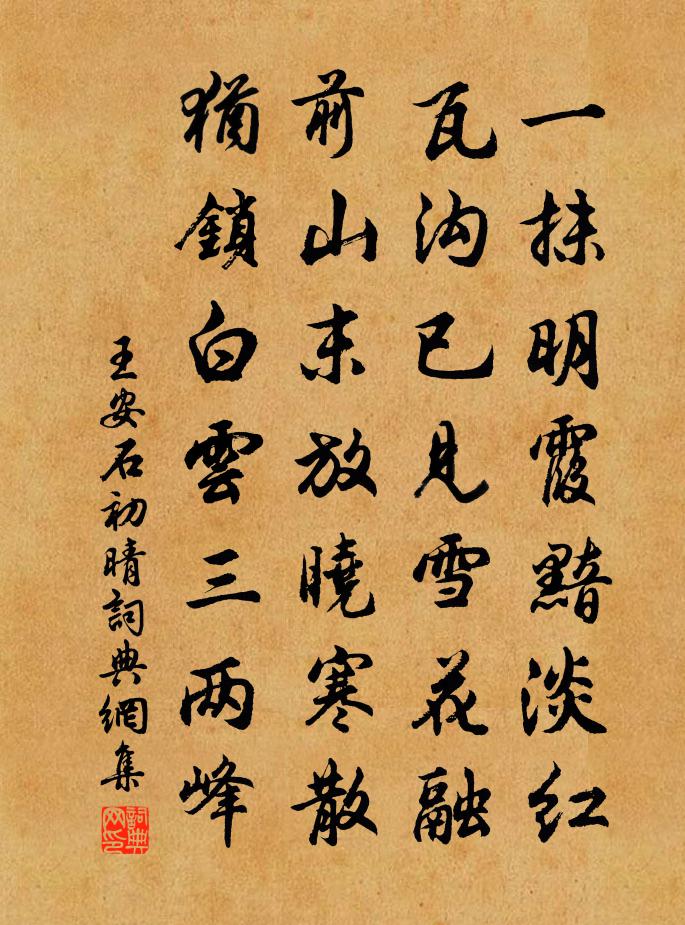 一抹明霞黯淡红
瓦沟已见雪花融
前山未放曉寒散
猶鎖白雲三两峰
王安石初晴詞典網集
詞典网印